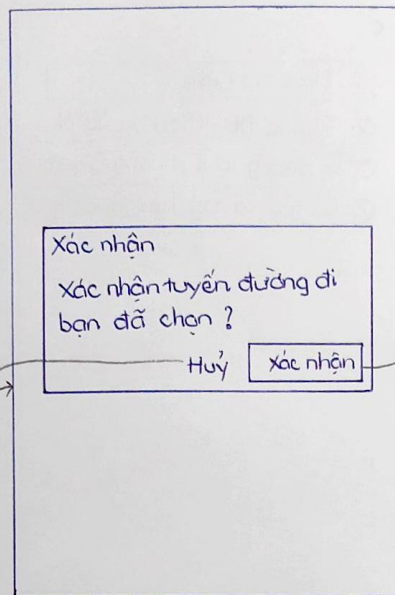 Xác nhận
Xác nhận tuyến đường đi
bạn đã chọn ?
Huỷ Xác nhận